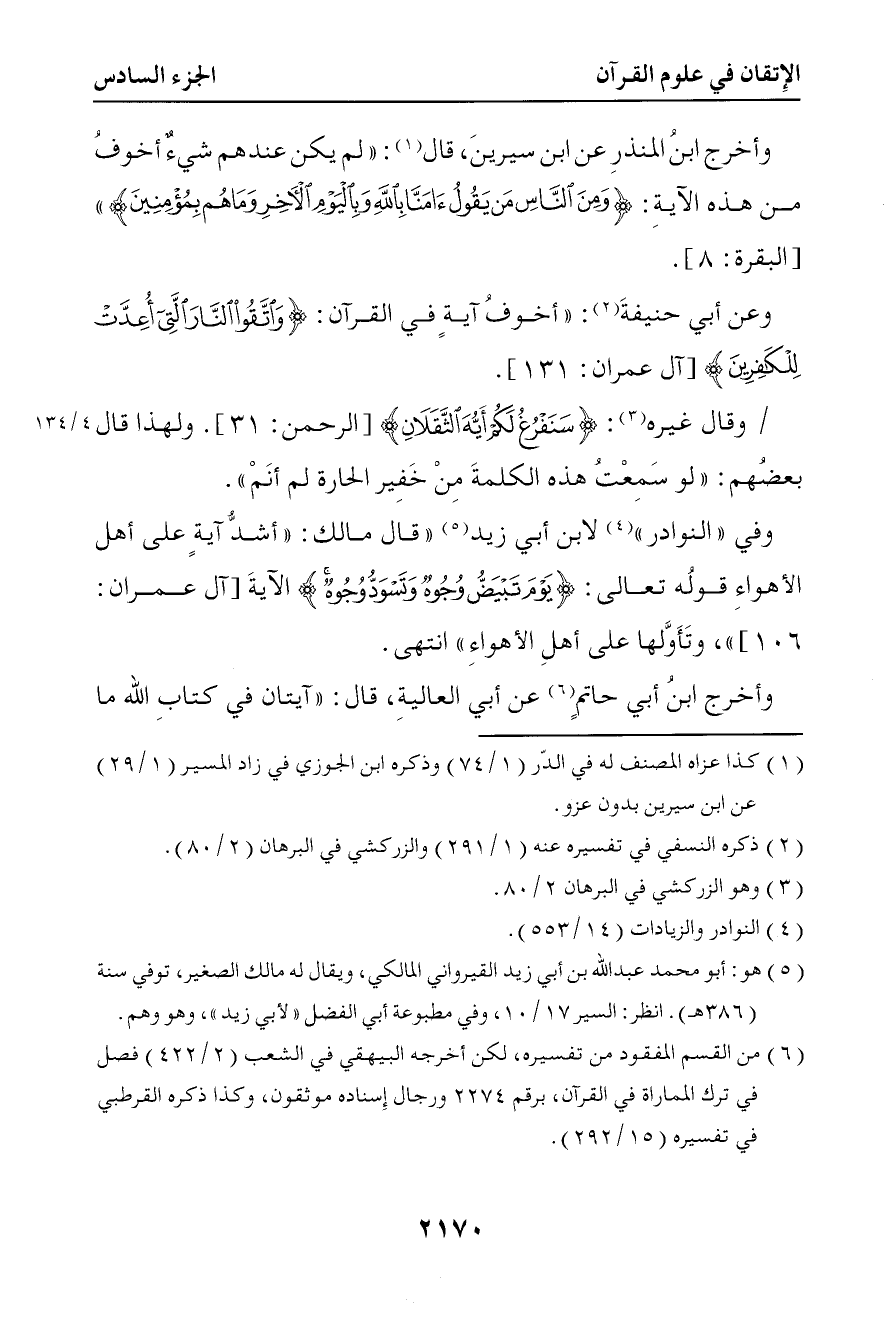 الإتقان في علوم القرآن الجزء السادس
وأخرج ابنُ المنذرِ عن ابن سيرينَ، قال(١): «لم يكن عندهم شيءٌ أخوفُ
من هذه الآيةِ: ﴿وَمِنَ ٱلنَّاسِ مَن يَقُولُ ءَامَنَّا بِٱللَّهِ وَبِٱلْيَوْمِ ٱلْأَخِرِ وَمَا هُم بِمُؤْمِنِينَ﴾»
[البقرة: ٨].
وعن أبي حنيفةَ(٢): «أخوفُ آيةٍ في القرآن: ﴿وَٱتَّقُوا۟ ٱلنَّارَ ٱلَّتِىٓ أُعِدَّتْ
لِلْكَٰفِرِينَ﴾ [آل عمران: ١٣١].
/ وقال غيره(٣): ﴿سَنَفْرُغُ لَكُمْ أَيُّهَ ٱلثَّقَلَانِ﴾ [الرحمن: ٣١]. ولهذا قال ١٣٤/٤
بعضُهم: «لو سَمِعْتُ هذه الكلمةَ مِنْ خَفيرِ الحارة لم أنَمْ».
وفي «النوادر»(٤) لابن أبي زيد(٥) «قال مالك: «أشدُّ آيةٍ على أهل
الأهواءِ قولُه تعالى: ﴿يَوْمَ تَبْيَضُّ وُجُوهٌ وَتَسْوَدُّ وُجُوهٌ ۚ﴾ الآيةَ [آل عمران:
١٠٦]»، وتَأَوَّلها على أهلِ الأهواءِ» انتهى.
وأخرج ابنُ أبي حاتمٍ(٦) عن أبي العاليةِ، قال: «آيتان في كتابِ الله ما
(١) كذا عزاه المصنف له في الدّر (٧٤/١) وذكره ابن الجوزي في زاد المسير (٢٩/١)
عن ابن سيرين بدون عزو.
(٢) ذكره النسفي في تفسيره عنه (٢٩١/١) والزركشي في البرهان (٨٠/٢).
(٣) وهو الزركشي في البرهان ٨٠/٢.
(٤) النوادر والزيادات (٥٥٣/١٤).
(٥) هو: أبو محمد عبدالله بن أبي زيد القيرواني المالكي، ويقال له مالك الصغير، توفي سنة
(٣٨٦هـ). انظر: السير ١٠/١٧، وفي مطبوعة أبي الفضل «لأبي زيد»، وهو وهم.
(٦) من القسم المفقود من تفسيره، لكن أخرجه البيهقي في الشعب (٤٢٢/٢) فصل
في ترك المماراة في القرآن، برقم ٢٢٧٤ ورجال إسناده موثقون، وكذا ذكره القرطبي
في تفسيره (٢٩٢/١٥).
٢١٧٠